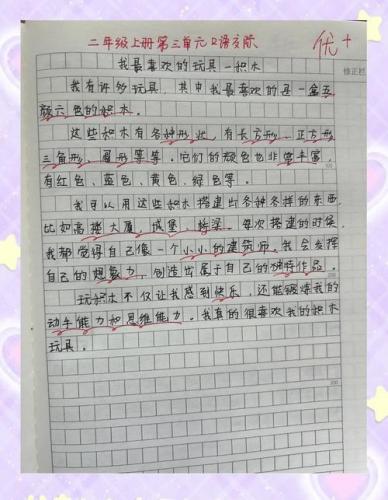 二年级上册第三单元口语交际
优+
我最喜欢的玩具—积木
修正栏
我有许多玩具，其中我最喜欢的是一盒五
颜六色的积木。
这些积木有各种形状，有长方形、正方形
三角形、圆形等等。它们的颜色也非常丰富，
有红色、蓝色、黄色、绿色等。
我可以用这些积木搭建出各种各样的东西，
比如高楼大厦、城堡、桥梁。每次搭建的时候，
我都觉得自己像一个小小的建筑师。我会发挥
自己的想象力，创造出属于自己的独特作品。
玩积木不仅让我感到快乐，还能锻炼我的
动手能力和思维能力。我真的很喜欢我的积木
玩具。